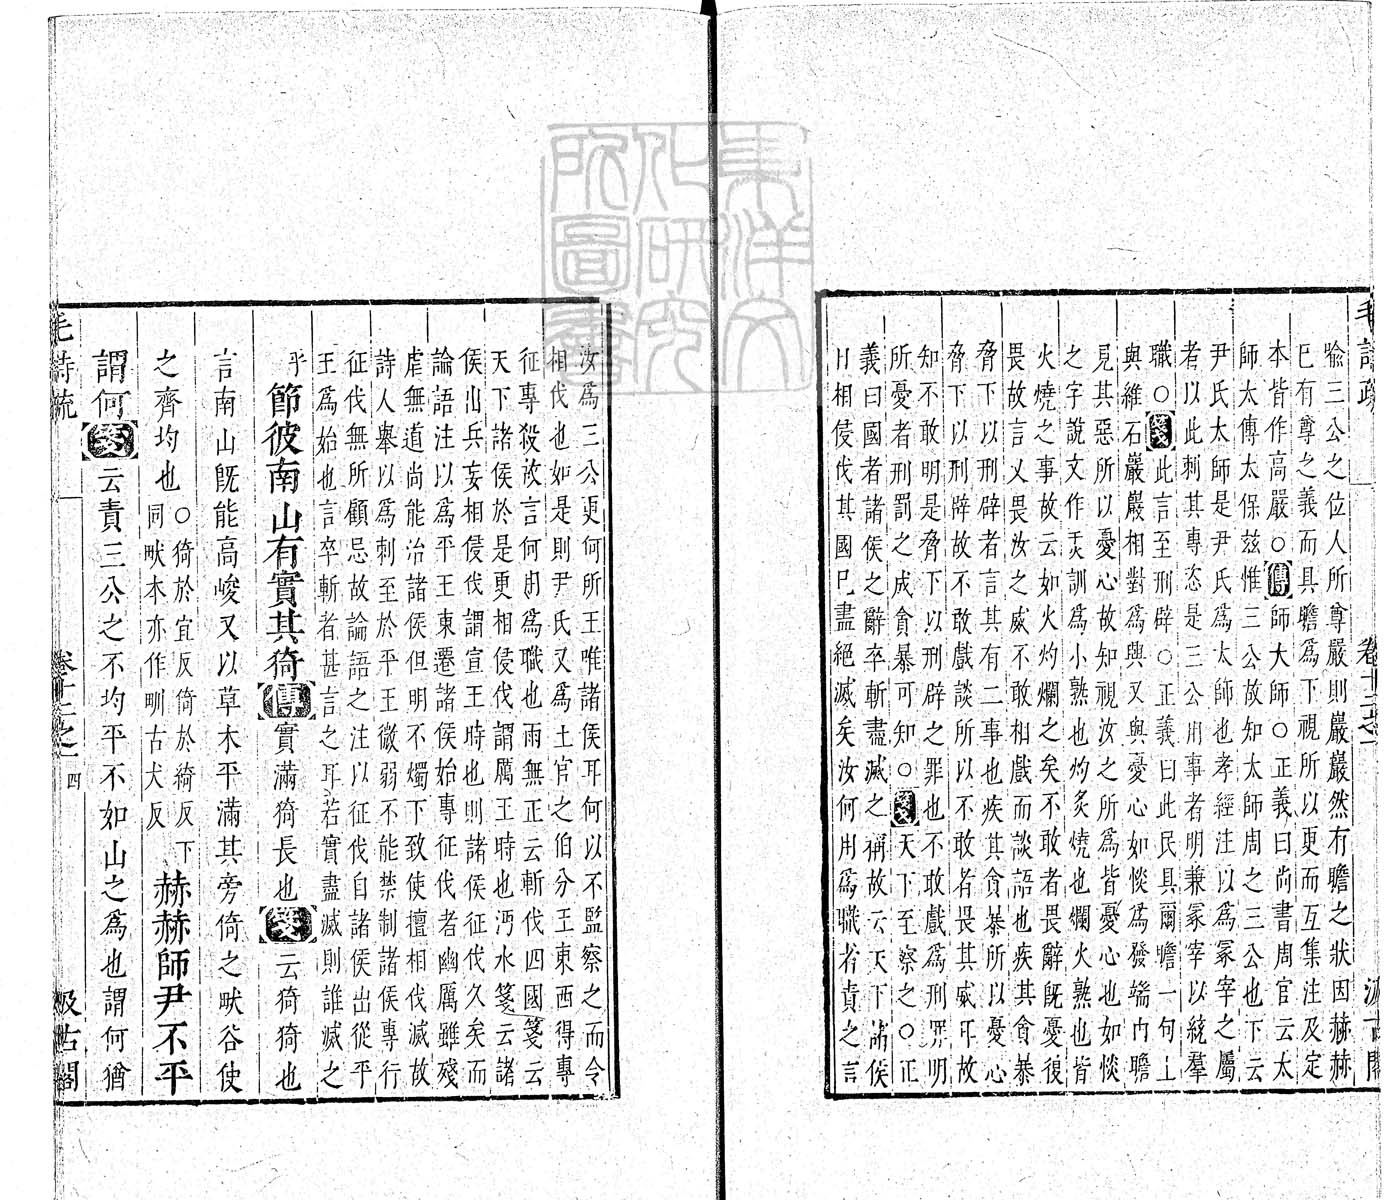 毛詩疏 卷十二之一 汲古閣
喻三公之位人所尊嚴則巖巖然有瞻之狀因赫赫
已有尊之義而具瞻爲下視所以更而互集注及定
本皆作高嚴○傳師大師○正義曰尚書周官云太
師太傅太保茲惟三公故知太師周之三公也下云
尹氏太師是尹氏爲太師也孝經注以爲冢宰之屬
者以此刺其專恣是三公用事者明兼冢宰以統羣
職○箋此言至刑辟○正義曰此民具爾瞻一句上
與維石巖巖相對爲興又與憂心如惔爲發端內瞻
見其惡所以憂心故知視汝之所爲皆憂心也如惔
之字說文作㶣訓爲小熟也灼炙燒也爛火熟也皆
火燒之事故云如火灼爛之矣不敢者畏辭旣憂復
畏故言又畏汝之威不敢相戲而談語也疾其貪暴
脅下以刑辟者言其有二事也疾其貪暴所以憂心
脅下以刑辟故不敢戲談所以不敢者畏其威耳故
知不敢明是脅下以刑辟之罪也不敢戲爲刑罪明
所憂者刑罰之成貪暴可知○箋天下至察之○正
義曰國者諸侯之辭卒斬盡滅之稱故云天下諸侯
日相侵伐其國已盡絕滅矣汝何用爲職者責之言
汝爲三公更何所王唯諸侯耳何以不監察之而令
相伐也如是則尹氏又爲土官之伯分王東西得專
征專殺故言何用爲職也雨無正云斬伐四國箋云
天下諸侯於是更相侵伐謂厲王時也沔水箋云諸
侯出兵妄相侵伐謂宣王時也則諸侯征伐久矣而
論語注以爲平王東遷諸侯始專征伐者幽厲雖殘
虐無道尚能治諸侯但明不燭下致使擅相伐滅故
詩人舉以爲刺至於平王微弱不能禁制諸侯專行
征伐無所顧忌故論語之注以征伐自諸侯出從平
王爲始也言卒斬者甚言之耳若實盡滅則誰滅之
乎節彼南山有實其猗傳實滿猗長也箋云猗猗也
言南山旣能高峻又以草木平滿其旁倚之畎谷使
之齊均也○猗於宜反倚於綺反下同畎本亦作甽古犬反赫赫師尹不平
謂何箋云責三公之不均平不如山之爲也謂何猶
毛詩疏 卷十二之一 四 汲古閣
東洋文化研究所圖書